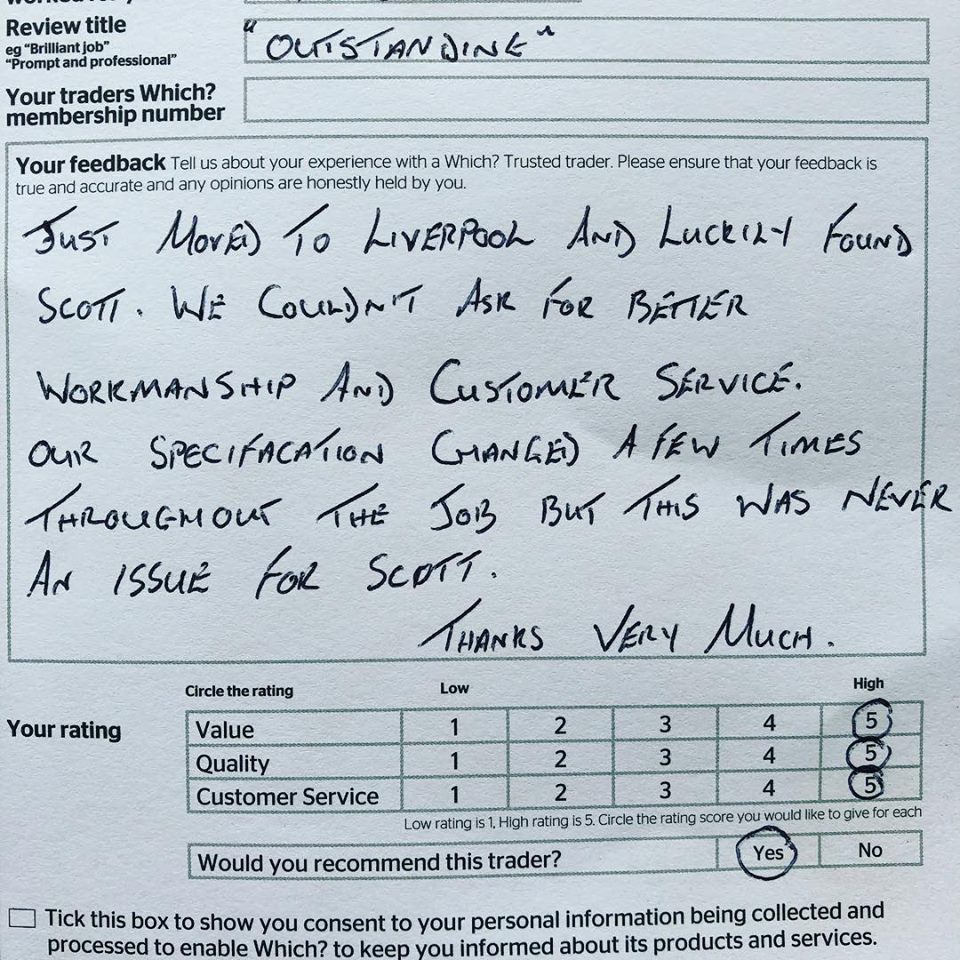 Review title
eg "Brilliant job"
"Prompt and professional"
"OUTSTANDING"
Your traders Which?
membership number
Your feedback Tell us about your experience with a Which? Trusted trader. Please ensure that your feedback is
true and accurate and any opinions are honestly held by you.
JUST MOVED TO LIVERPOOL AND LUCKILY FOUND
SCOTT. WE COULDN'T ASK FOR BETTER
WORKMANSHIP AND CUSTOMER SERVICE.
OUR SPECIFACATION CHANGED A FEW TIMES
THROUGHOUT THE JOB BUT THIS WAS NEVER
AN ISSUE FOR SCOTT.
THANKS VERY MUCH.
Circle the rating Low High
Your rating
Value 1 2 3 4 5
Quality 1 2 3 4 5
Customer Service 1 2 3 4 5
Low rating is 1, High rating is 5. Circle the rating score you would like to give for each
Would you recommend this trader? Yes No
Tick this box to show you consent to your personal information being collected and
processed to enable Which? to keep you informed about its products and services.